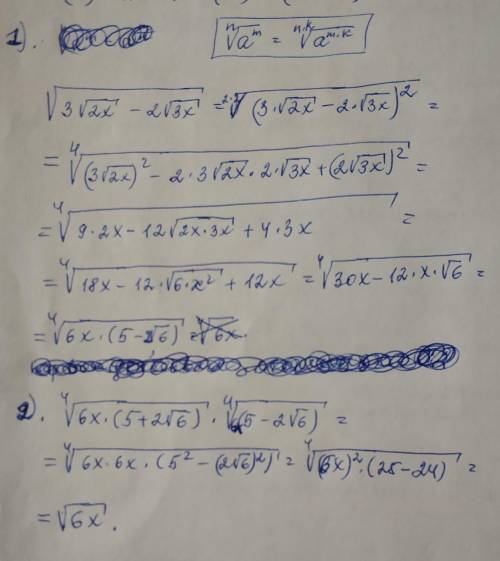 1). ⁿ√(a^m) = ⁿ·ᵏ√(a^(m·k))
√(3√(2x) − 2√(3x)) = ²·²√((3·√(2x) − 2·√(3x))²) =
= ⁴√((3√(2x))² − 2·3√(2x)·2·√(3x) + (2√(3x))²) =
= ⁴√(9·2x − 12√(2x·3x) + 4·3x) =
= ⁴√(18x − 12·√(6·x²) + 12x) = ⁴√(30x − 12·x·√6) =
= ⁴√(6x·(5 − 2√6))
2). ⁴√(6x·(5 + 2√6)) · ⁴√(6x(5 − 2√6)) =
= ⁴√(6x·6x·(5² − (2√6)²)) = ⁴√((6x)²·(25 − 24)) =
= √(6x).